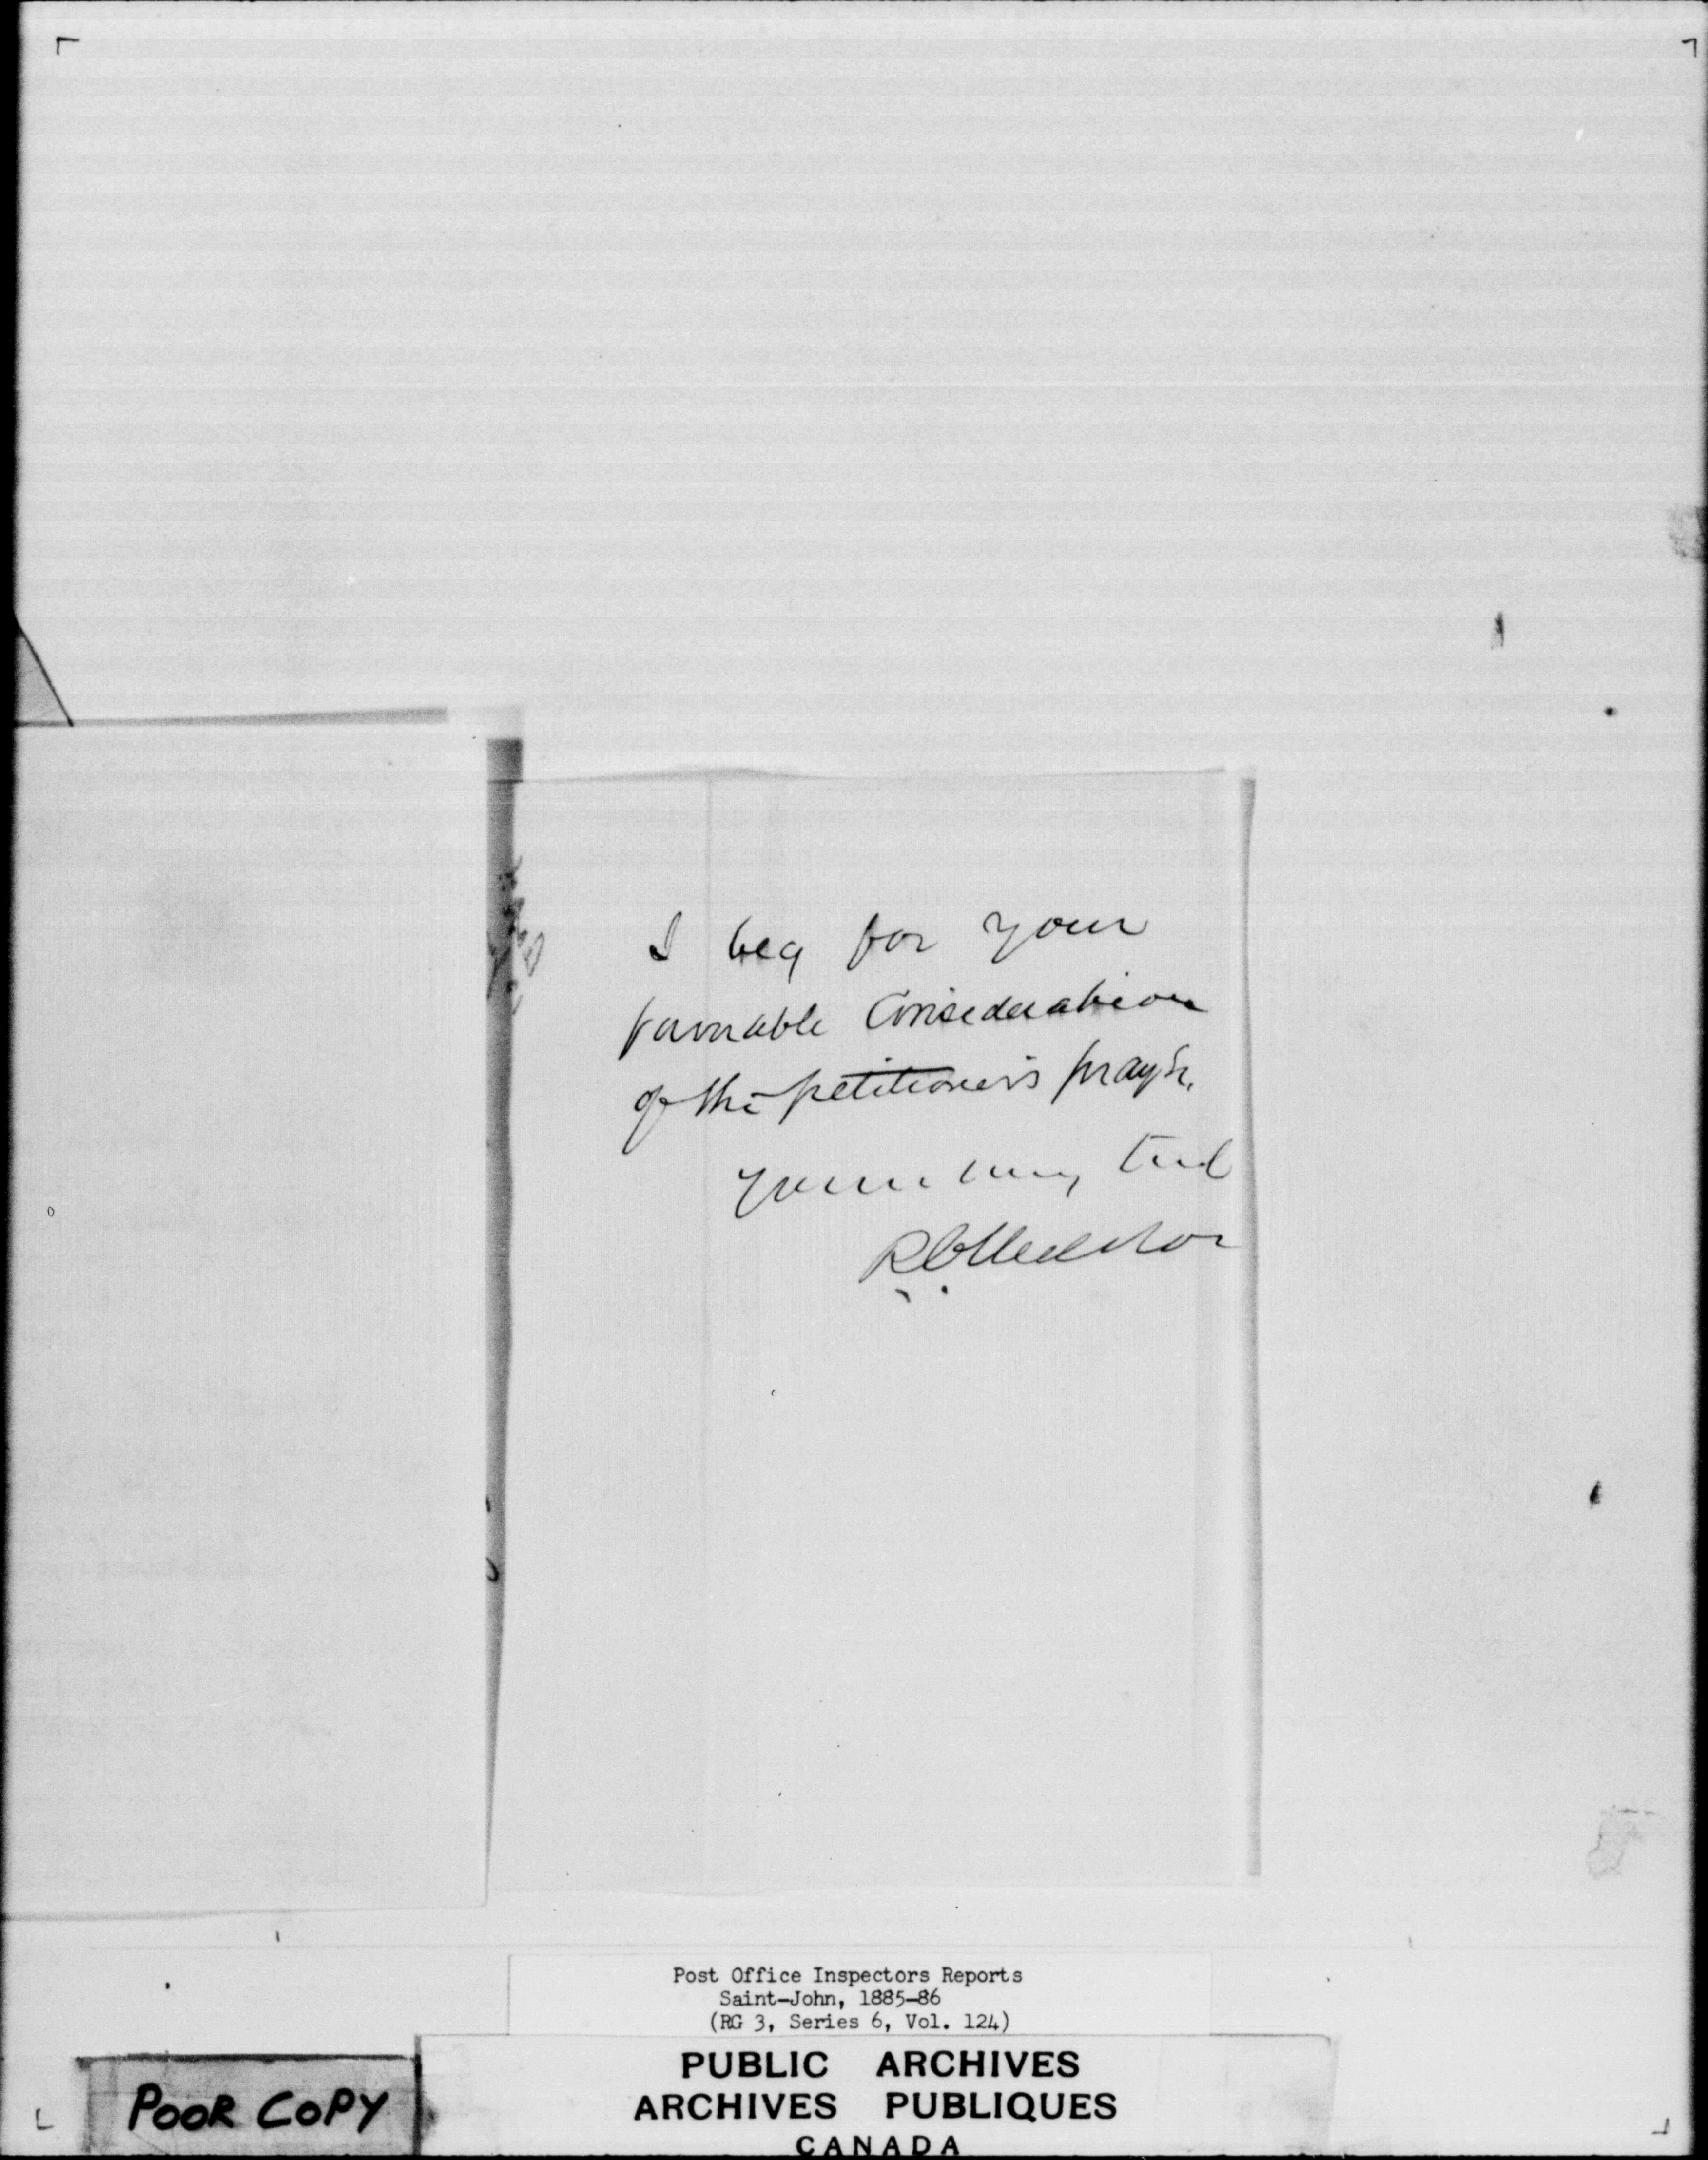 I beg for your
favorable Consideration
of the petitioner's pray'r.
Yours very Trul
Post Office Inspectors Reports
Saint-John, 1885-86
(RG 3, Series 6, Vol. 124)
PUBLIC ARCHIVES
ARCHIVES PUBLIQUES
CANADA
POOR COPY